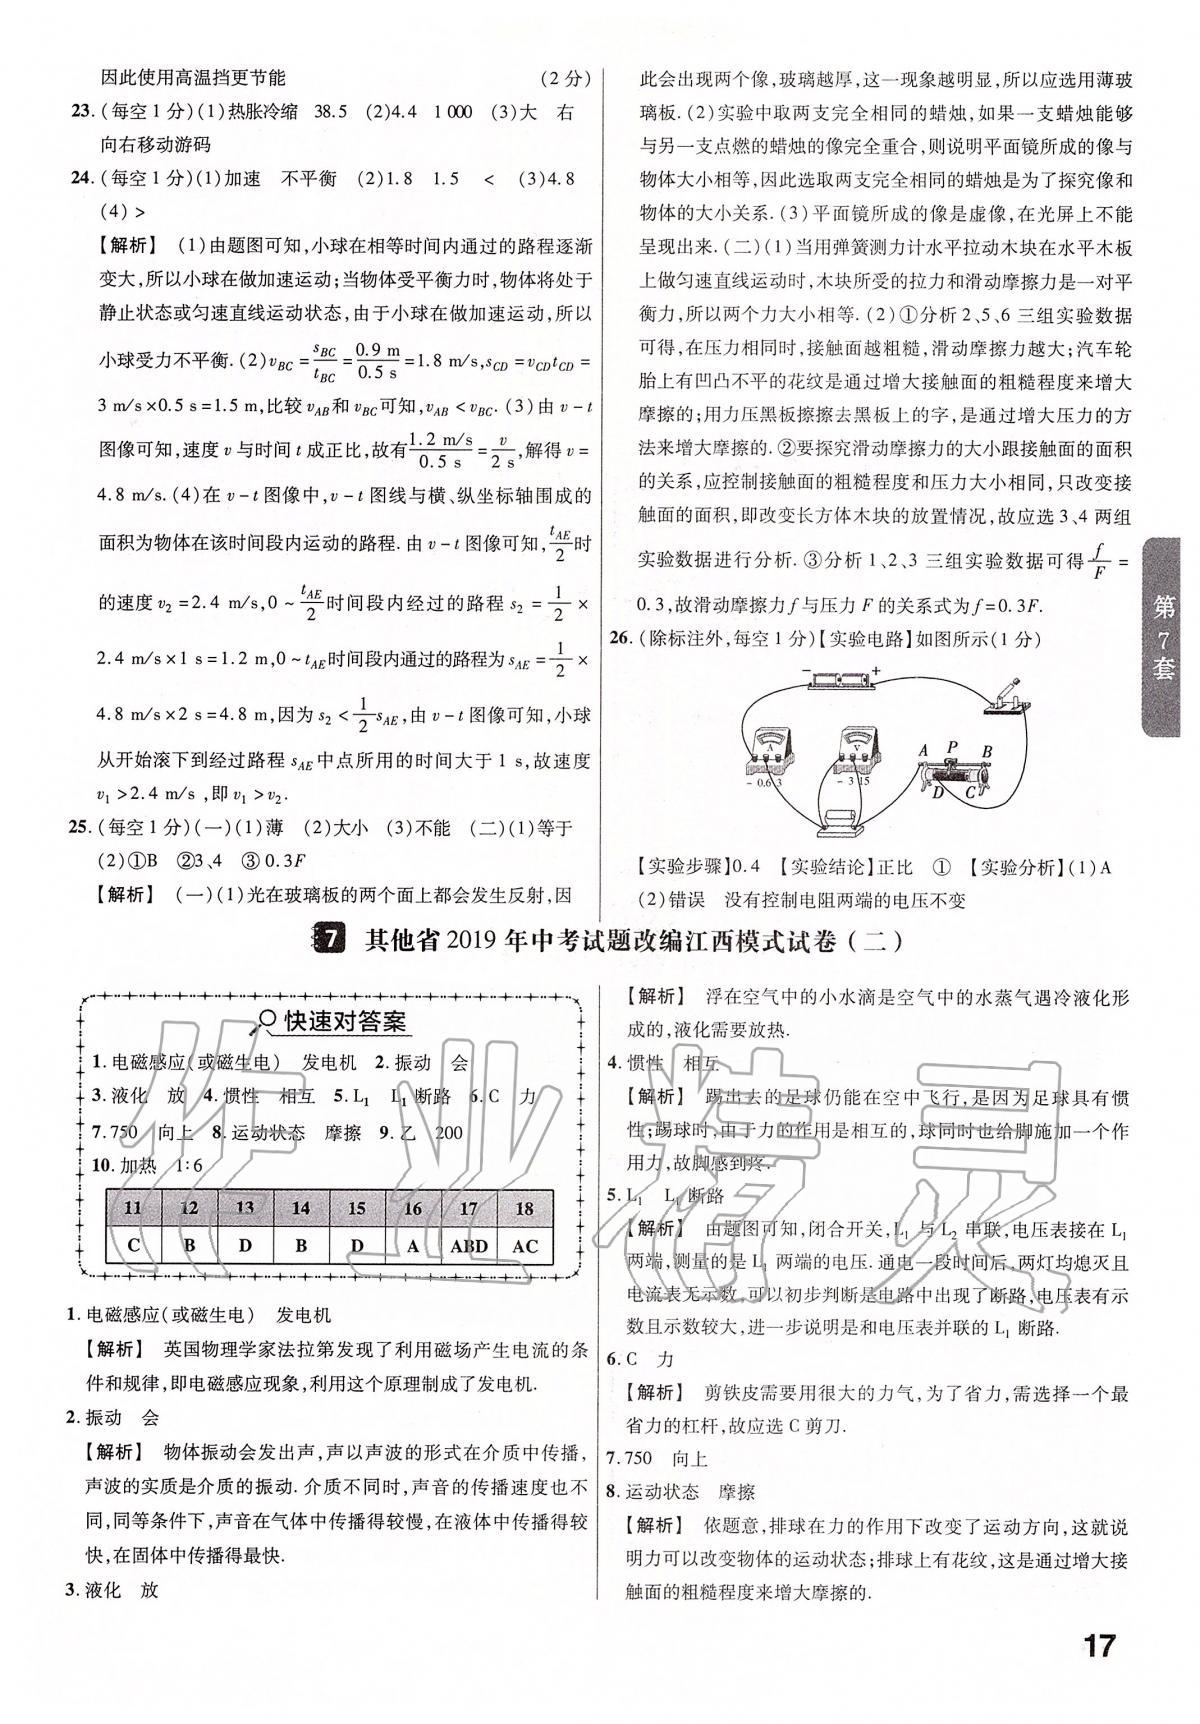 因此使用高温挡更节能 (2 分)
23.(每空 1 分)(1)热胀冷缩 38.5 (2)4.4 1 000 (3)大 右
向右移动游码
24.(每空 1 分)(1)加速 不平衡 (2)1.8 1.5 < (3)4.8
(4) >
【解析】 (1)由题图可知,小球在相等时间内通过的路程逐渐
变大,所以小球在做加速运动;当物体受平衡力时,物体将处于
静止状态或匀速直线运动状态,由于小球在做加速运动,所以
小球受力不平衡.(2)v_BC = s_BC/t_BC = 0.9 m/0.5 s = 1.8 m/s,s_CD = v_CD t_CD =
3 m/s×0.5 s=1.5 m,比较 v_AB 和 v_BC 可知,v_AB < v_BC.(3)由 v-t
图像可知,速度 v 与时间 t 成正比,故有 1.2 m/s/0.5 s = v/2 s,解得 v=
4.8 m/s.(4)在 v-t 图像中,v-t 图线与横、纵坐标轴围成的
面积为物体在该时间段内运动的路程.由 v-t 图像可知,t_AE/2 时
的速度 v₂=2.4 m/s,0~t_AE/2 时间段内经过的路程 s₂ = 1/2 ×
2.4 m/s×1 s=1.2 m,0~t_AE 时间段内通过的路程为 s_AE = 1/2 ×
4.8 m/s×2 s=4.8 m,因为 s₂ < 1/2 s_AE,由 v-t 图像可知,小球
从开始滚下到经过路程 s_AE 中点所用的时间大于 1 s,故速度
v₁>2.4 m/s,即 v₁>v₂.
25.(每空 1 分)(一)(1)薄 (2)大小 (3)不能 (二)(1)等于
(2)①B ②3、4 ③0.3F
【解析】 (一)(1)光在玻璃板的两个面上都会发生反射,因
此会出现两个像,玻璃越厚,这一现象越明显,所以应选用薄玻
璃板.(2)实验中取两支完全相同的蜡烛,如果一支蜡烛能够
与另一支点燃的蜡烛的像完全重合,则说明平面镜所成的像与
物体大小相等,因此选取两支完全相同的蜡烛是为了探究像和
物体的大小关系.(3)平面镜所成的像是虚像,在光屏上不能
呈现出来.(二)(1)当用弹簧测力计水平拉动木块在水平木板
上做匀速直线运动时,木块所受的拉力和滑动摩擦力是一对平
衡力,所以两个力大小相等.(2)①分析 2、5、6 三组实验数据
可得,在压力相同时,接触面越粗糙,滑动摩擦力越大;汽车轮
胎上有凹凸不平的花纹是通过增大接触面的粗糙程度来增大
摩擦的;用力压黑板擦擦去黑板上的字,是通过增大压力的方
法来增大摩擦的.②要探究滑动摩擦力的大小跟接触面的面积
的关系,应控制接触面的粗糙程度和压力大小相同,只改变接
触面的面积,即改变长方体木块的放置情况,故应选 3、4 两组
实验数据进行分析.③分析 1、2、3 三组实验数据可得 f/F =
0.3,故滑动摩擦力 f 与压力 F 的关系式为 f=0.3F.
26.(除标注外,每空 1 分)【实验电路】如图所示(1 分)
- +
A V A P B
- 0.6 3 - 3 15 D C
【实验步骤】0.4 【实验结论】正比 ① 【实验分析】(1)A
(2)错误 没有控制电阻两端的电压不变
第 7 套
7 其他省 2019 年中考试题改编江西模式试卷(二)
快速对答案
1.电磁感应(或磁生电) 发电机 2.振动 会
3.液化 放 4.惯性 相互 5.L₁ L₁ 断路 6.C 力
7.750 向上 8.运动状态 摩擦 9.乙 200
10.加热 1:6
11 12 13 14 15 16 17 18
C B D B D A ABD AC
1.电磁感应(或磁生电) 发电机
【解析】 英国物理学家法拉第发现了利用磁场产生电流的条
件和规律,即电磁感应现象,利用这个原理制成了发电机.
2.振动 会
【解析】 物体振动会发出声,声以声波的形式在介质中传播,
声波的实质是介质的振动.介质不同时,声音的传播速度也不
同,同等条件下,声音在气体中传播得较慢,在液体中传播得较
快,在固体中传播得最快.
3.液化 放
【解析】 浮在空气中的小水滴是空气中的水蒸气遇冷液化形
成的,液化需要放热.
4.惯性 相互
【解析】 踢出去的足球仍能在空中飞行,是因为足球具有惯
性;踢球时,由于力的作用是相互的,球同时也给脚施加一个作
用力,故脚感到疼.
5.L₁ L₁ 断路
【解析】 由题图可知,闭合开关,L₁ 与 L₂ 串联,电压表接在 L₁
两端,测量的是 L₁ 两端的电压.通电一段时间后,两灯均熄灭且
电流表无示数,可以初步判断是电路中出现了断路,电压表有示
数且示数较大,进一步说明是和电压表并联的 L₁ 断路.
6.C 力
【解析】 剪铁皮需要用很大的力气,为了省力,需选择一个最
省力的杠杆,故应选 C 剪刀.
7.750 向上
8.运动状态 摩擦
【解析】 依题意,排球在力的作用下改变了运动方向,这就说
明力可以改变物体的运动状态;排球上有花纹,这是通过增大接
触面的粗糙程度来增大摩擦的.
17
作业精灵